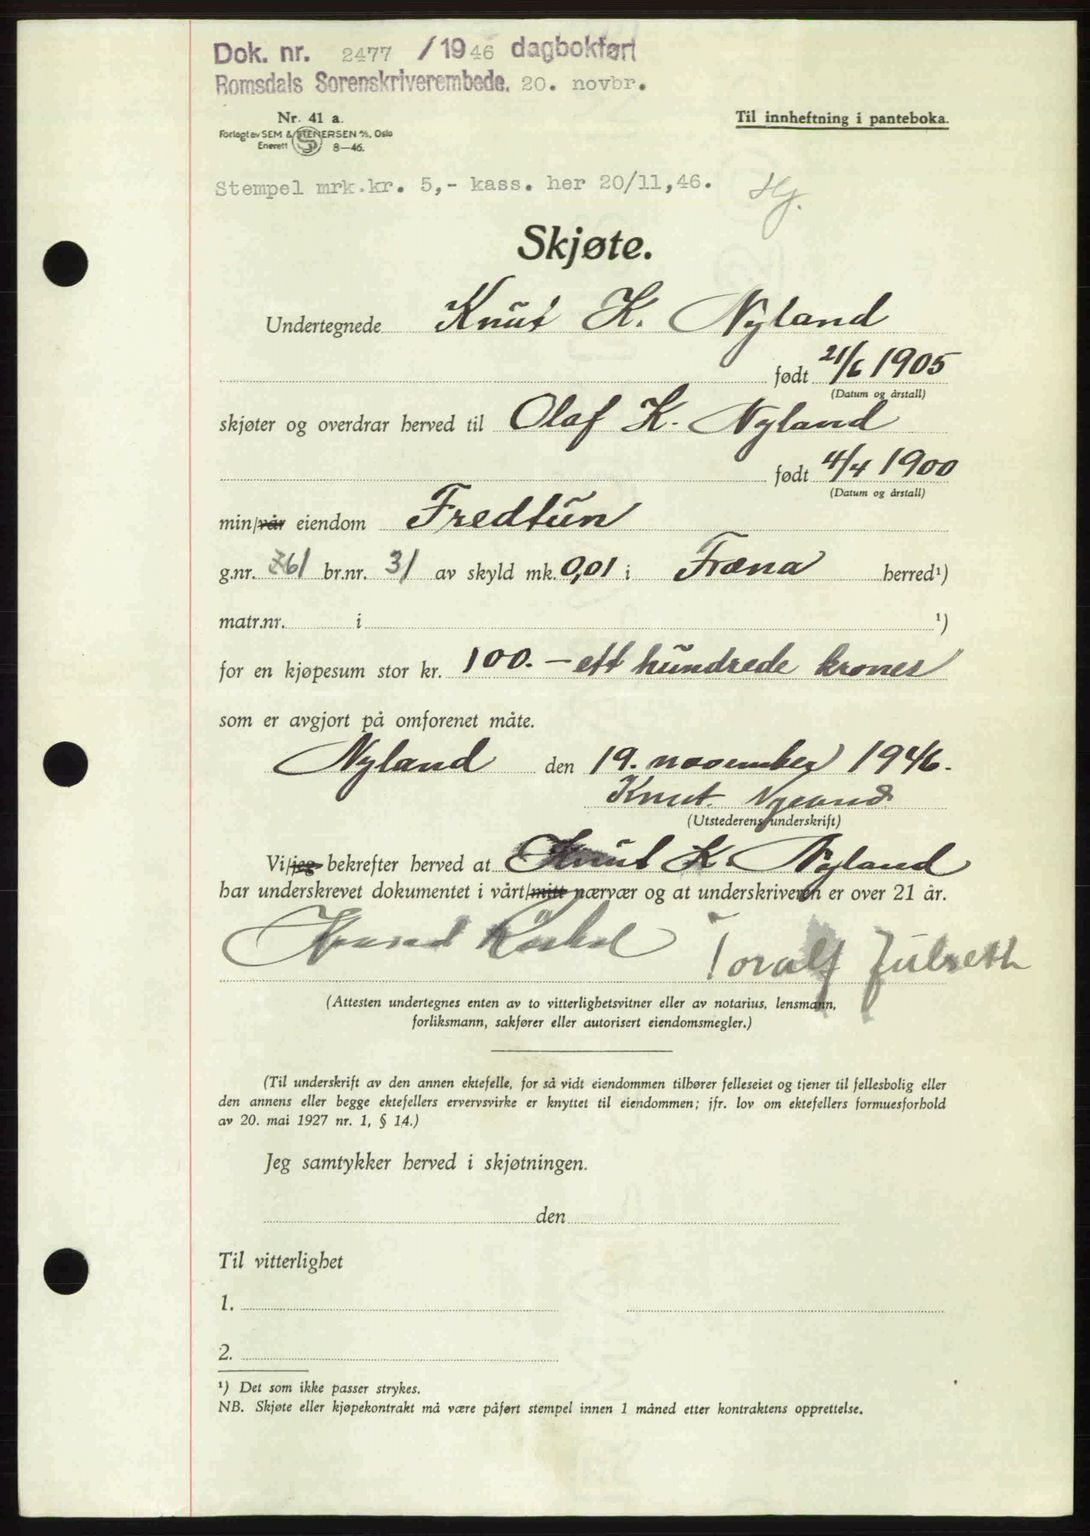 Dok. nr. 2477 /1946 dagbokført
Romsdals Sorenskriverembede. 20. novbr.
Nr. 41 a.
Til innheftning i panteboka.
Forlagt av SEM & STENERSEN A/S, Oslo
Enerett 8—46.
Stempel mrk.kr. 5,- kass. her 20/11,46. Hj.
Skjøte.
Undertegnede Knut K. Nyland
født 21/6 1905
(Datum og årstall)
skjøter og overdrar herved til Olaf K. Nyland
født 4/4 1900
(Datum og årstall)
min/vår eiendom Fredtun
g.nr. 61 br.nr. 31 av skyld mk. 0,01 i Fræna herred¹)
matr.nr. i ¹)
for en kjøpesum stor kr. 100.- ett hundrede kroner
som er avgjort på omforenet måte.
Nyland den 19. november 1946.
Knut Nyland
(Utstederens underskrift)
Vi/jeg bekrefter herved at Knut K. Nyland
har underskrevet dokumentet i vårt/mitt nærvær og at underskriveren er over 21 år.
Toralf Julseth
(Attesten undertegnes enten av to vitterlighetsvitner eller av notarius, lensmann,
forliksmann, sakfører eller autorisert eiendomsmegler.)
(Til underskrift av den annen ektefelle, for så vidt eiendommen tilhører felleseiet og tjener til fellesbolig eller
den annens eller begge ektefellers ervervsvirke er knyttet til eiendommen; jfr. lov om ektefellers formuesforhold
av 20. mai 1927 nr. 1, § 14.)
Jeg samtykker herved i skjøtningen.
den
Til vitterlighet
1.
2.
¹) Det som ikke passer strykes.
NB. Skjøte eller kjøpekontrakt må være påført stempel innen 1 måned etter kontraktens opprettelse.